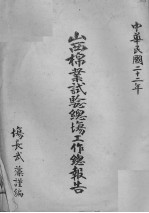 中華民國二十二年
山西棉業試驗總場工作總報告
場長武藻謹編